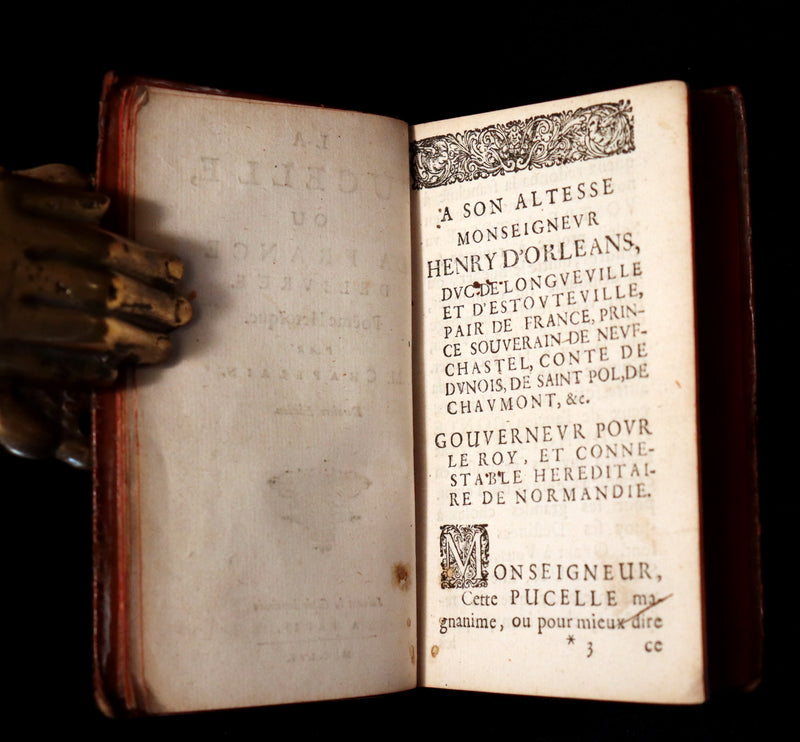 LA
UCELLE,
OU
LA FRANCE
DELIVRE'E.
Poëme Heroïque.
PAR
CHAPELAIN.
A SON ALTESSE
MONSEIGNEVR
HENRY D'ORLEANS,
DVC DE LONGVEVILLE
ET D'ESTOVTEVILLE,
PAIR DE FRANCE, PRIN-
CE SOUVERAIN DE NEVF-
CHASTEL, CONTE DE
DVNOIS, DE SAINT POL, DE
CHAVMONT, &c.
GOUVERNEVR POVR
LE ROY, ET CONNE-
STABLE HEREDITAI-
RE DE NORMANDIE.
MONSEIGNEUR,
Cette PUCELLE ma-
gnanime, ou pour mieux dire
* 3 ce